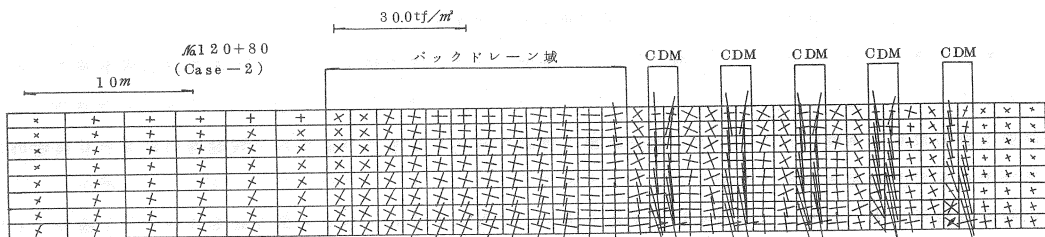 30.0tf/m²
№120+80
(Case-2)
パックドレーン域
CDM CDM CDM CDM CDM
10m